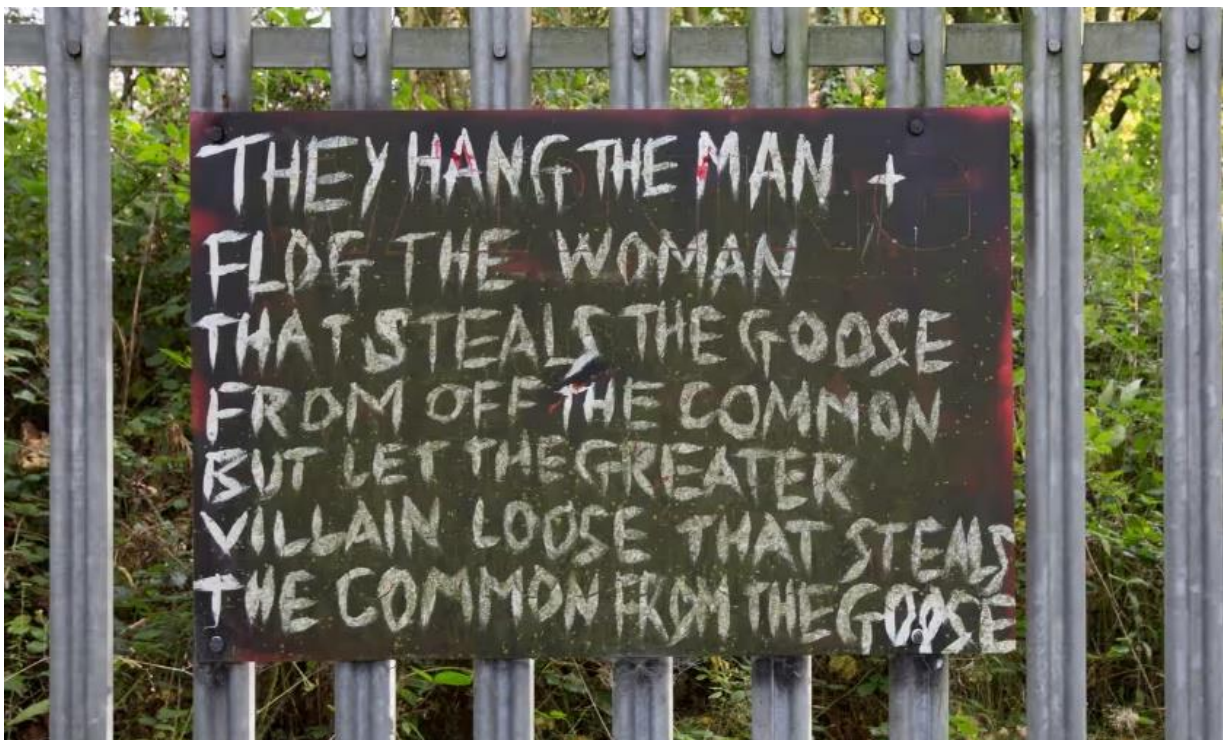 THEY HANG THE MAN +
FLOG THE WOMAN
THAT STEALS THE GOOSE
FROM OFF THE COMMON
BUT LET THE GREATER
VILLAIN LOOSE THAT STEALS
THE COMMON FROM THE GOOSE